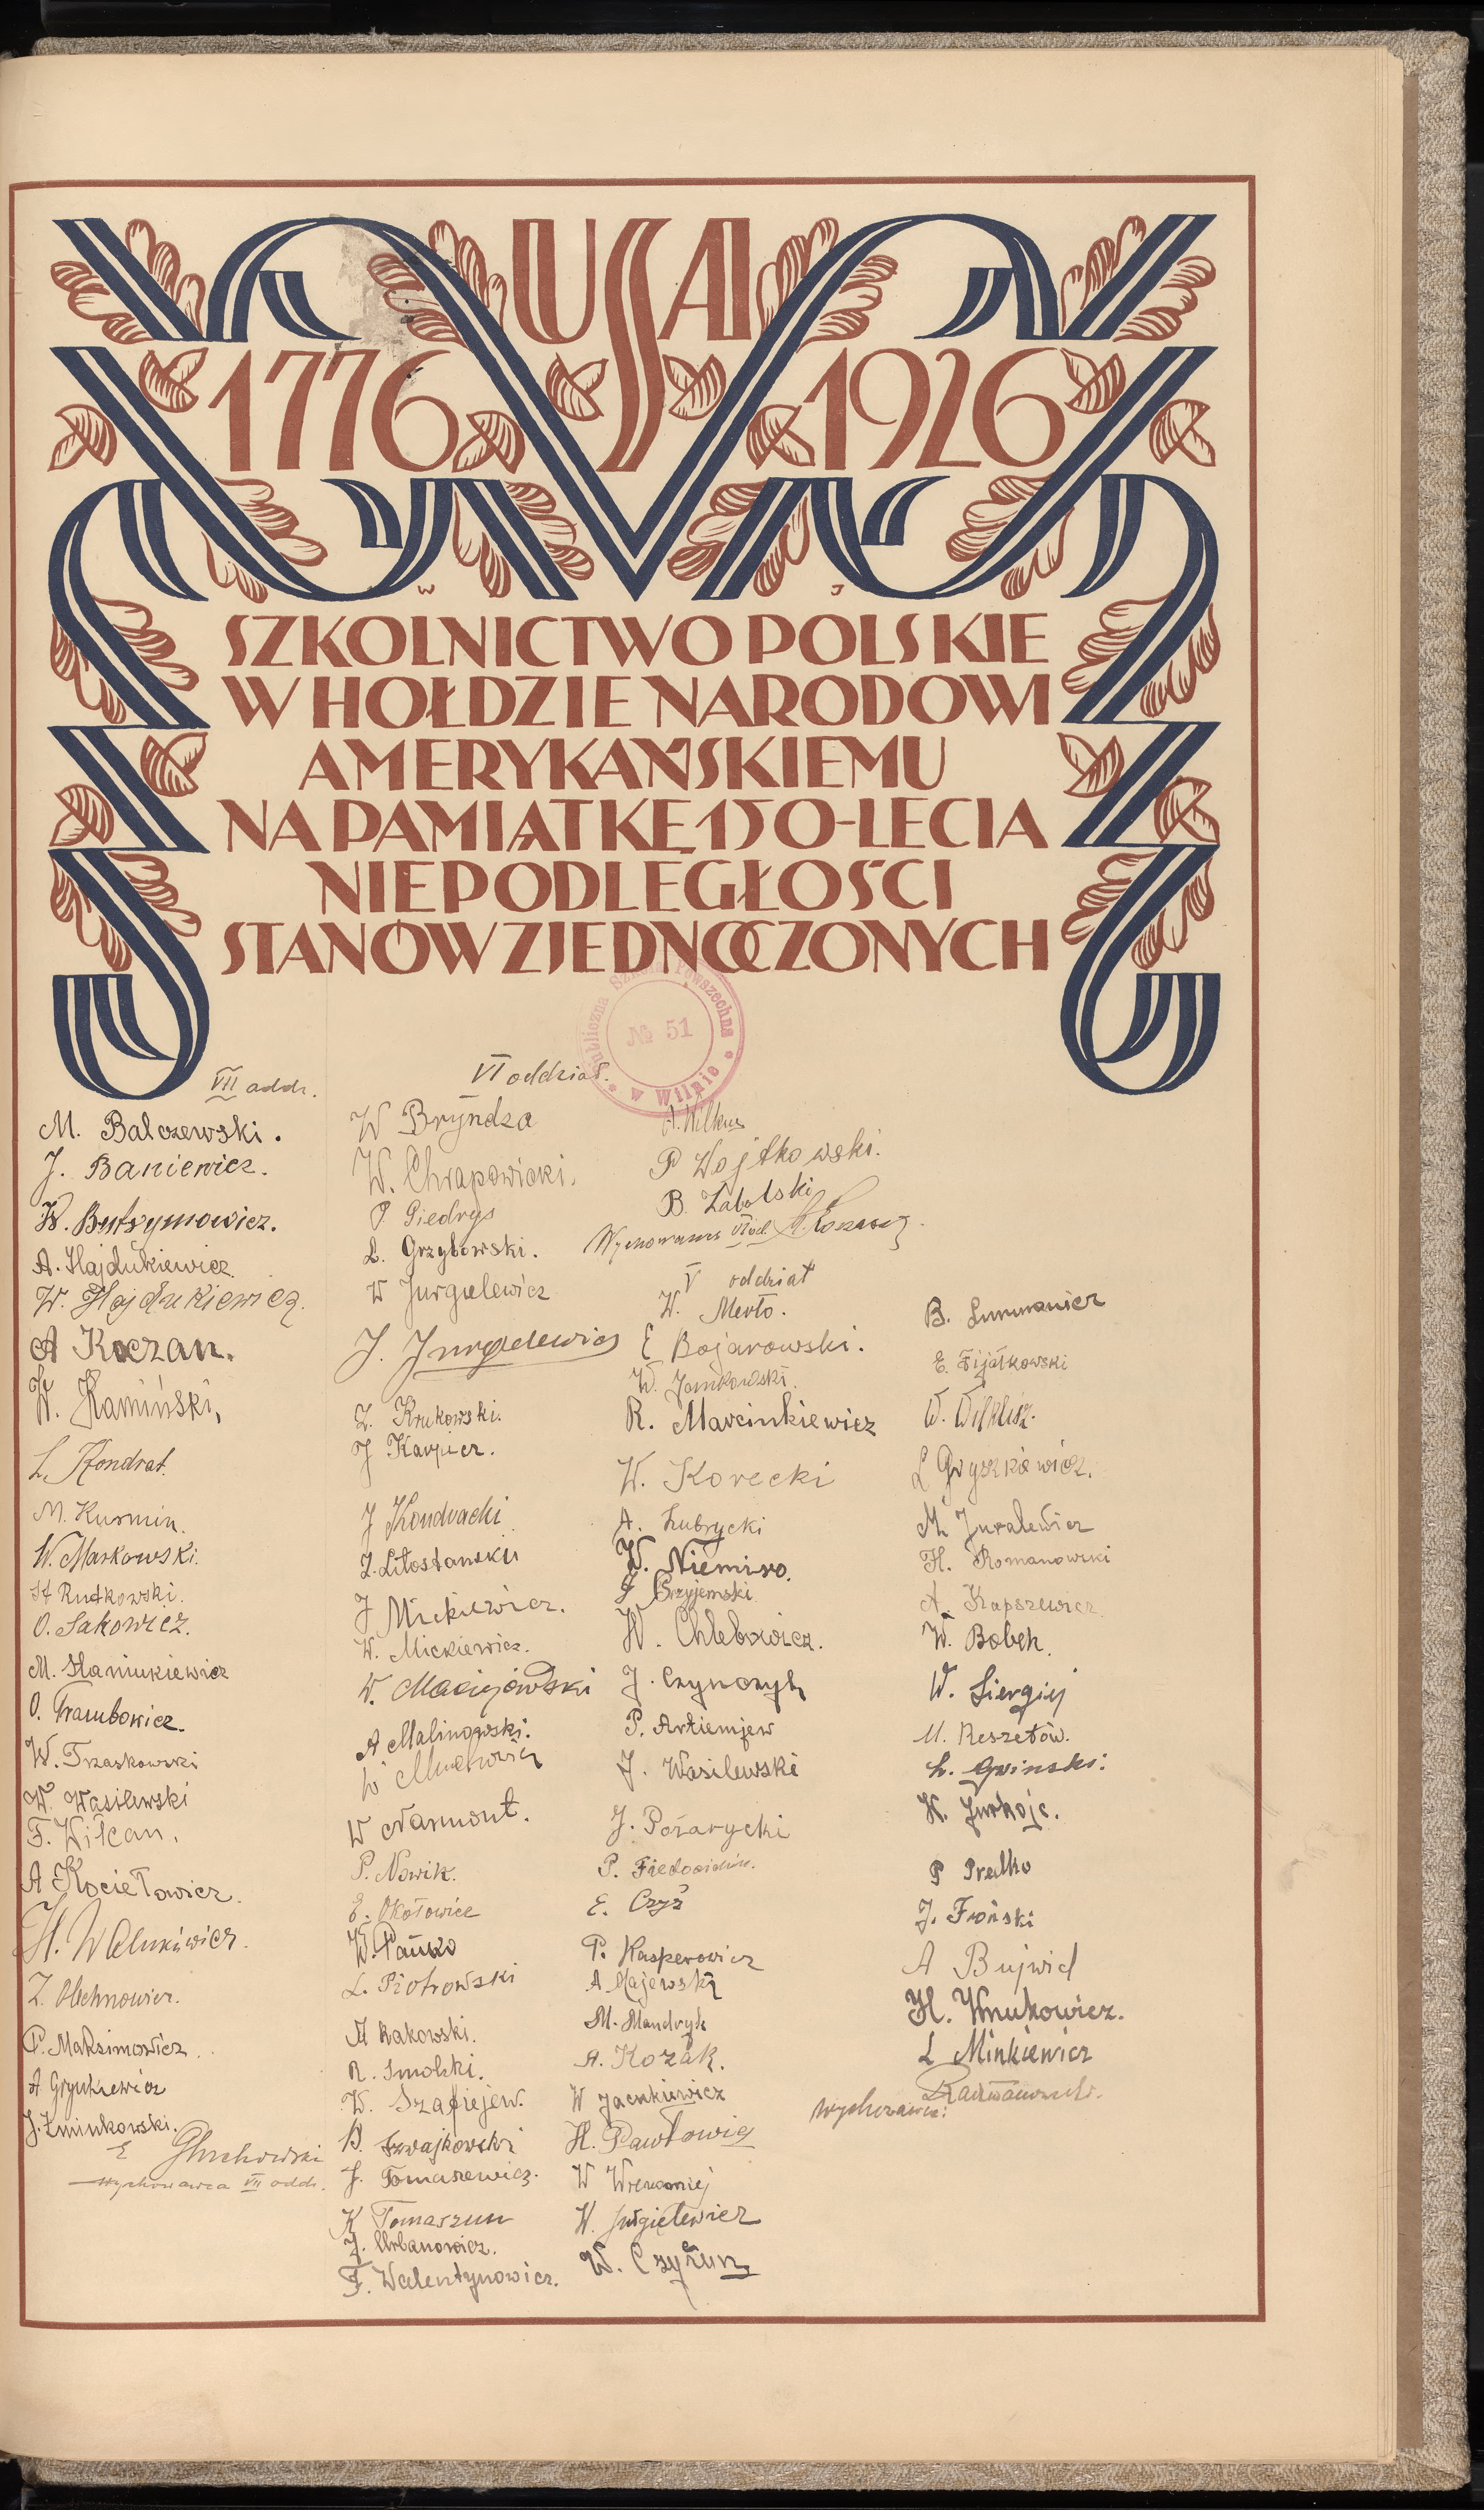 USA
1776 1926
W J
SZKOLNICTWO POLSKIE
W HOŁDZIE NARODOWI
AMERYKAŃSKIEMU
NA PAMIĄTKĘ 150-LECIA
NIEPODLEGŁOŚCI
STANÓW ZJEDNOCZONYCH
Publiczna Szkoła Powszechna
№ 51
w Wilnie
VII oddz.
M. Balczewski.
J. Baniewicz.
W. Butrymowicz.
A. Hajdukiewicz
W. Hajdukiewicz.
A Koczan.
W. Kamiński,
L. Kondrat.
M. Kurmin.
W. Markowski.
St Rutkowski.
O. Sakowicz.
M. Staniukiewicz
O. Trambowicz.
W. Trzaskowski
W. Wasilewski
F. Wilcan.
A Kociełowicz.
H. Walukiewicz.
Z. Olechnowicz.
P. Maksimowicz.
A Gryniewicz
J. Żminkowski.
E Głuchowski
Wychowawca VII oddz.
VI oddział.
W Bryndza
W. Chrapowicki.
P Giedrys
L. Grzybowski.
W Jurgielewicz
J. Jurgielewicz
Z. Krukowski.
J Karpicz.
J Kondracki
Z. Litostanski
J Mickiewicz.
W. Mickiewicz.
W. Maciejowski
A Malinowski.
W
W Narmont.
P. Nowik.
E. Okołowicz
W. Pańko
L. Piotrowski
A Rakowski.
R. Smolski.
W. Szafiejew.
B. Szwajkowski
J. Tomaszewicz.
K Tomaszun
Z. Urbanowicz.
F. Walentynowicz.
A. Wilkus
P Wojtkowski.
B. Zabolski
Wychowawca VI od.
V oddział
W. Merło.
E Bojarowski.
W. Jankowski.
R. Marcinkiewicz
W. Korecki
A. Łubrycki
W. Niemiro.
J Przyjemski
W. Chlebowicz.
J. Czynczyk
P. Artiemjew
J. Wasilewski
J. Pożarycki
P.
E. Czyż
P. Kasperowicz
A Majewski
M. Mandryk
A. Kozak.
W Jacukiewicz
H. Pawłowicz
W
W. Jurgielewicz
W. Czyżun
B.
E. Fijałkowski
W.
L Gryszkiewicz.
M Juralewicz
H. Romanowski
A. Kapszewicz
W. Bobek.
W. Siergiej
M. Reszetów.
L. Gwinski.
K. Jurkojc.
P Predko
J. Froński
A Bujwid
H. Wnukowicz.
L Minkiewicz
Wychowawca: